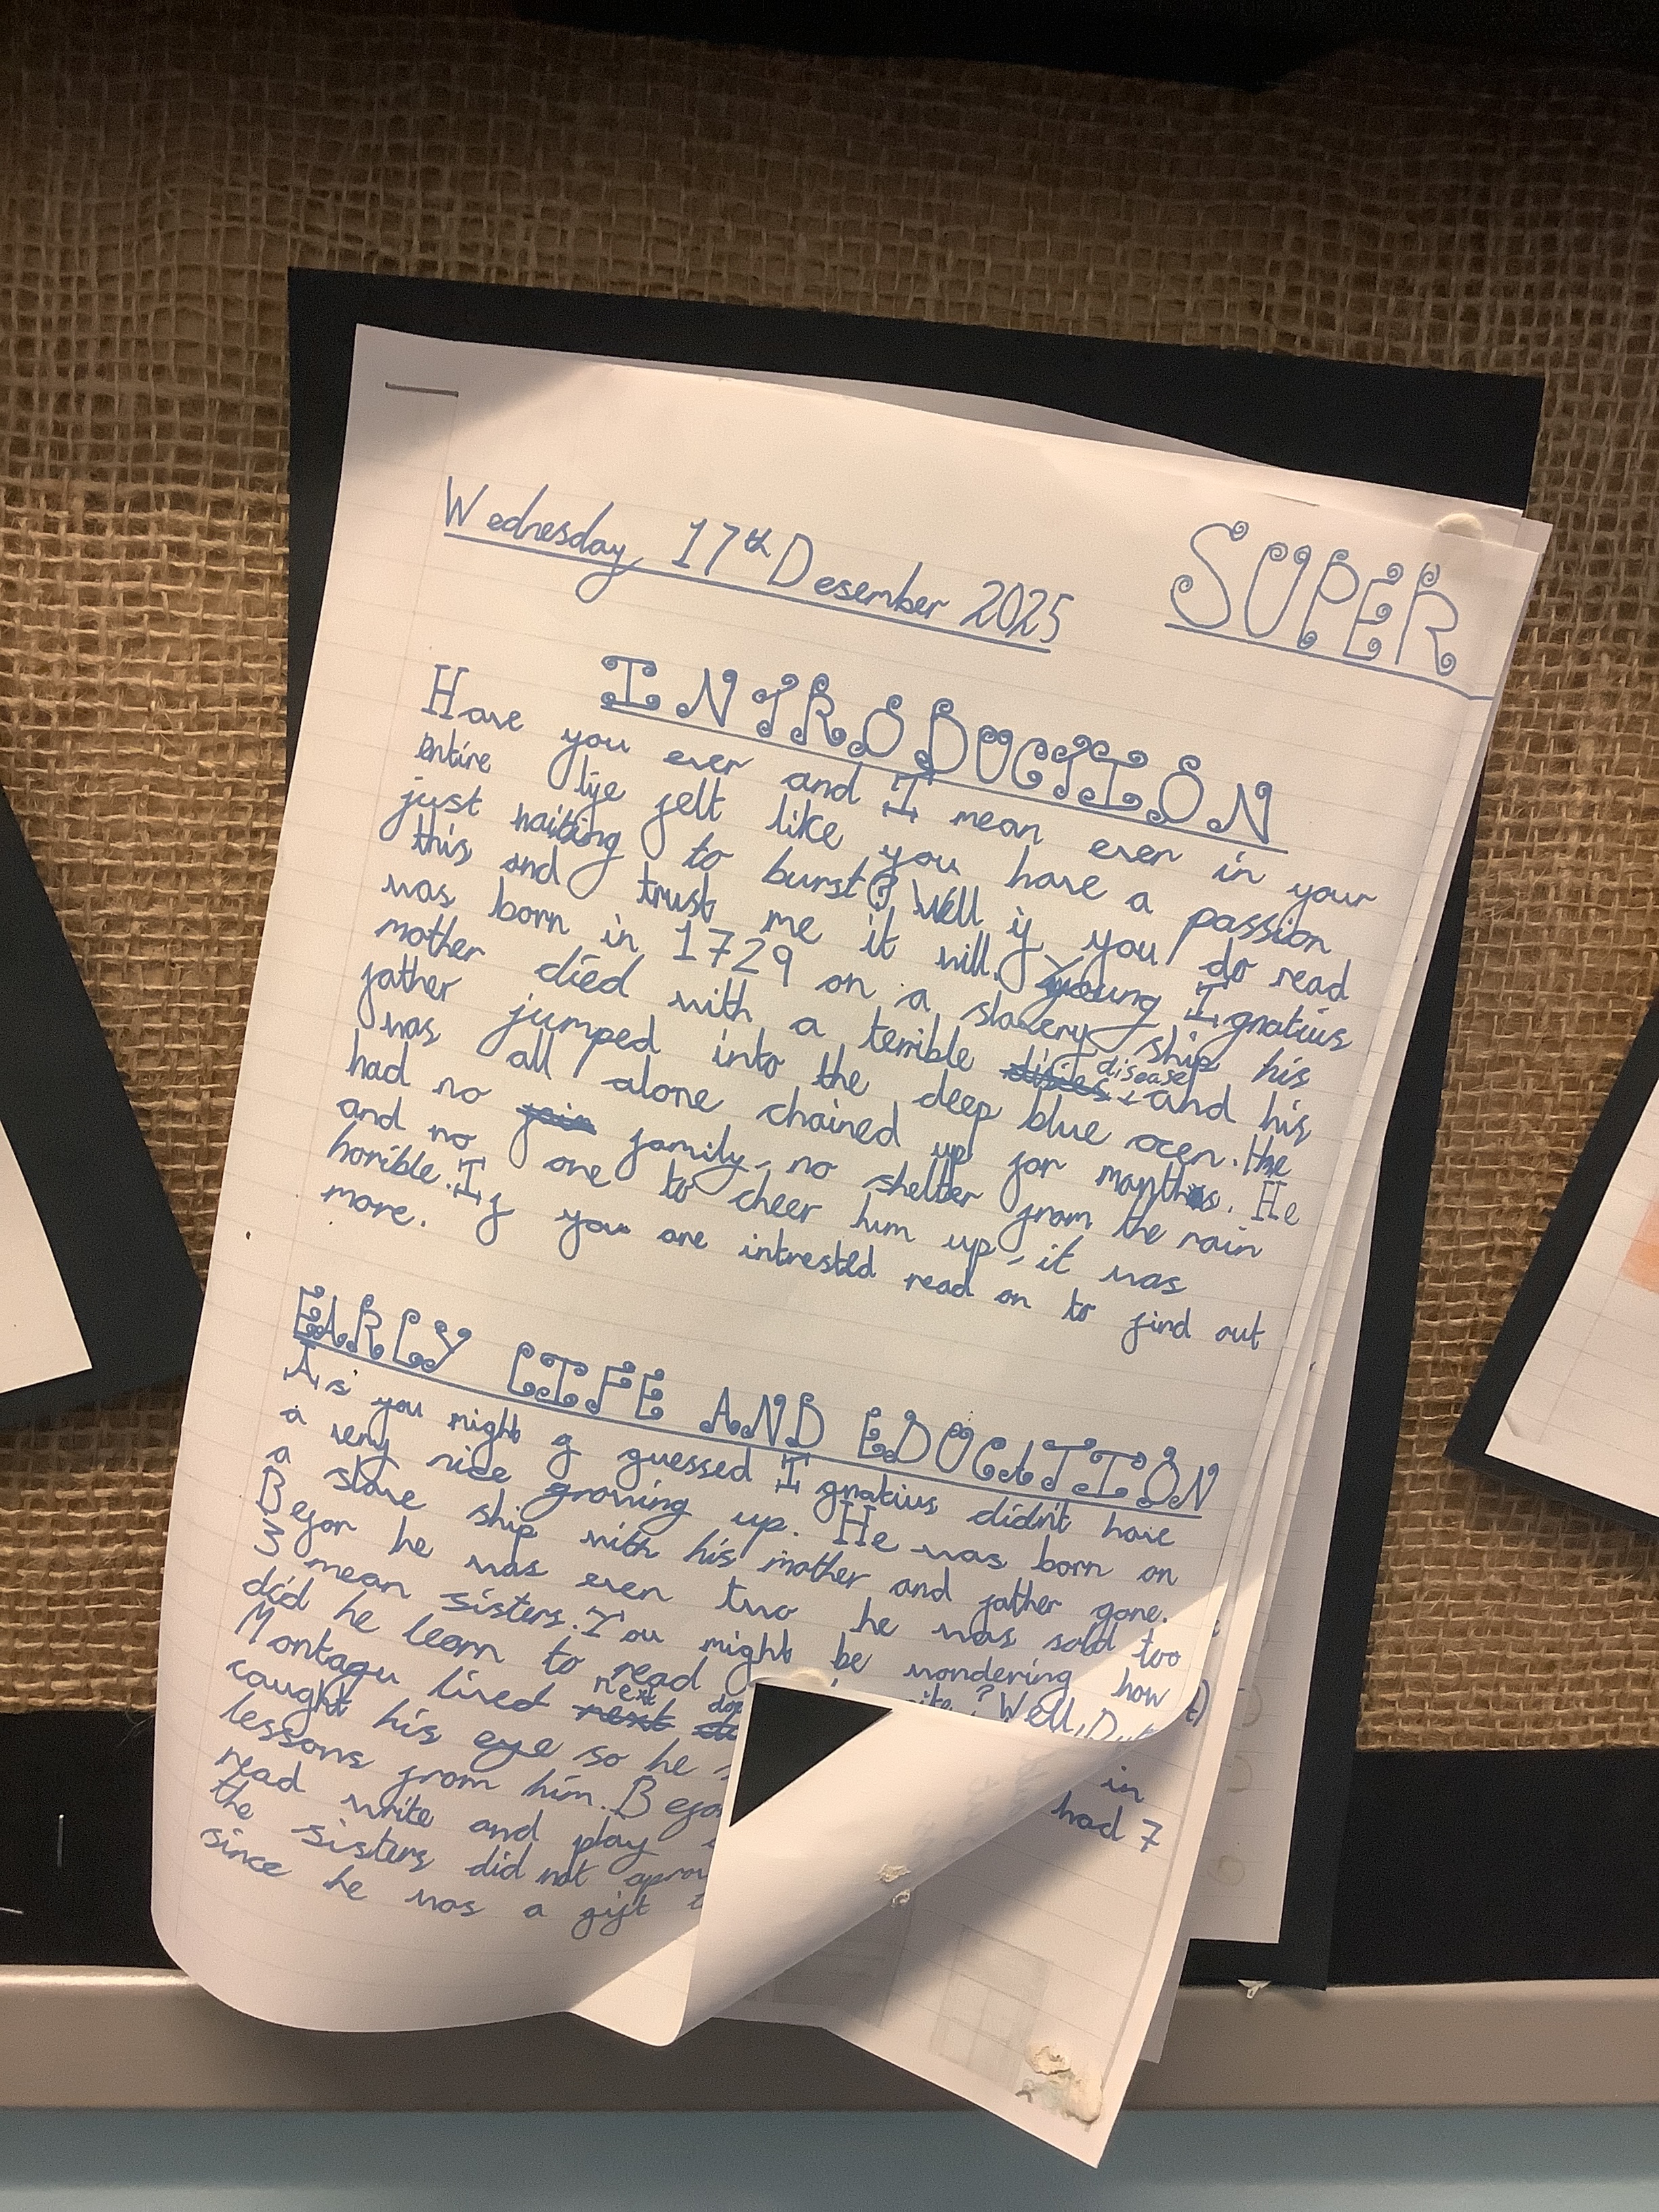 Wednesday, 17th Desember 2025
SUPER
INTRODUCTION
Have you ever and I mean ever in your
entire life felt like you have a passion
just waiting to burst? Well if you do read
this and trust me it will. young Ignatius
was born in 1729 on a slavery ship his
mother died with a terrible disease and his
father jumped into the deep blue ocen. He
was all alone chained up for manths. He
had no family, no shelter from the rain
and no one to cheer him up, it was
horible. If you are intrested read on to find out
more.
EARLY LIFE AND EDUCATION
As you might g guessed Ignatius didn't have
a very nice growing up. He was born on
a slave ship with his mother and father gone.
Befor he was even two he was sold too
3 mean sisters. You might be wondering how
did he learn to read Well,
Montagu lived next
caught his eye so he in
lessons from him. had 7
read write and play
the sisters did not
since he was a gift